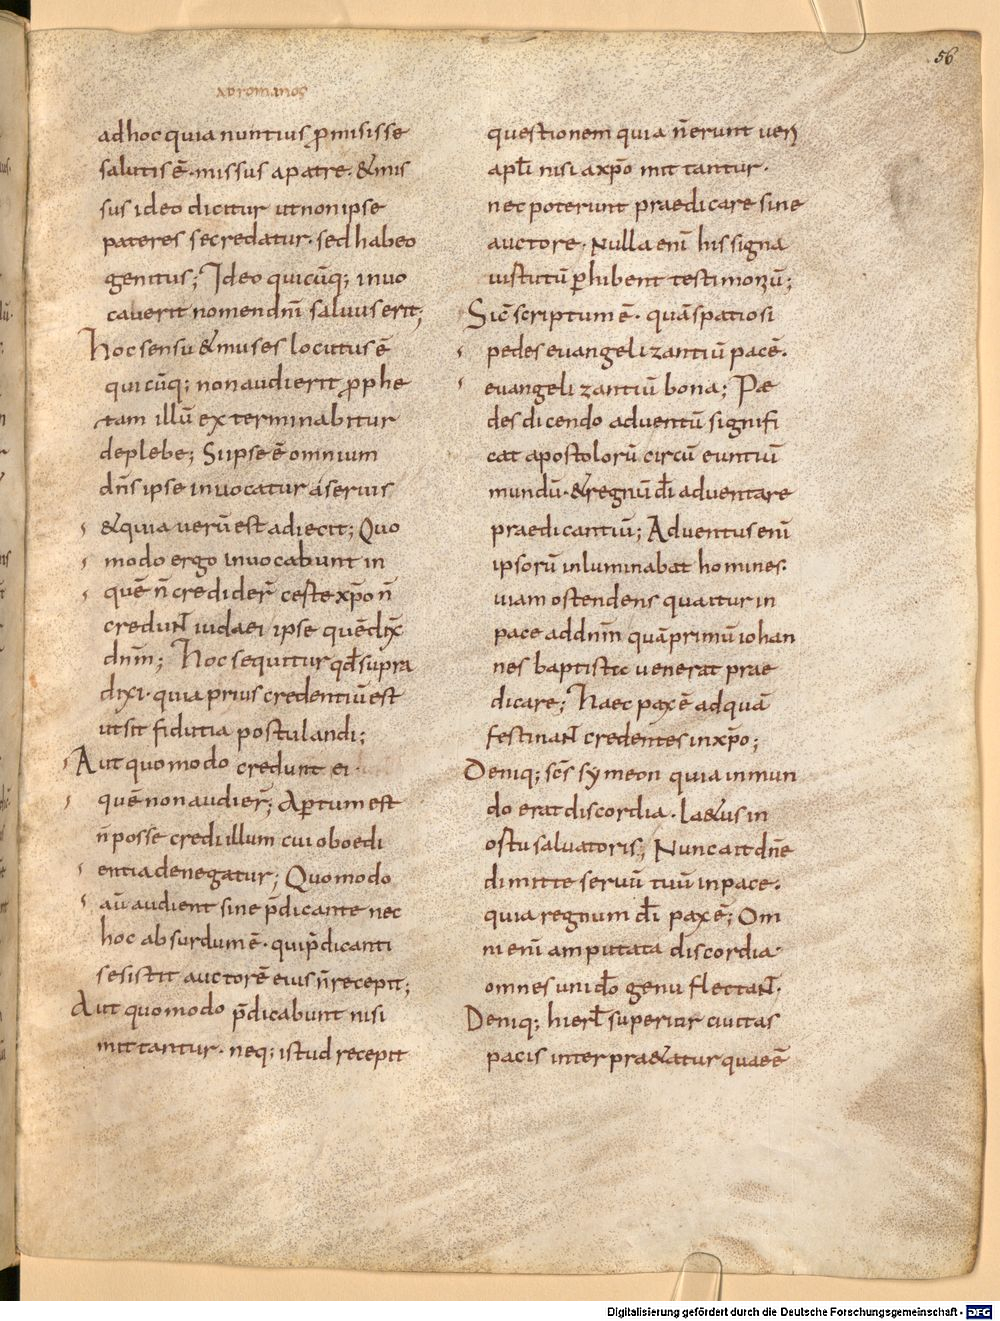 56
ad romanos
ad hoc quia nuntius p̄misisse
salutis ē· missus a patre· & mis
sus ideo dicitur ut non ipse
pater es se credatur· sed habeo
genitus; Ideo quicūq; invo
caverit nomen dnī salvus erit;
Hoc sensu & muses locutus ē
quicūq; non audierit p̄phe
tam illū exterminabitur
de plebe; Si ipse ē omnium
dn̄s ipse invocatur á servis
& quia verū est adiecit; Quo
modo ergo invocabunt in
quē n̄ credider̄ ceste xp̄o n̄
credunt iudaei ipse quē dix̄
dnm̄; Hoc sequitur qd̄ supra
dixi· quia prius credentiū est
ut sit fidutia postulandi;
Aut quomodo credunt ei·
quē non audier̄; Apertum est
n̄ posse credi illum cui oboedi
entia denegatur; Quomodo
aū audient sine p̄dicante nec
hoc absurdum ē· qui p̄dicanti
se sistit auctorē eius n̄ recepit;
Aut quomodo p̄dicabunt nisi
mittantur· neq; istud recepit
questionem quia n̄ erunt veri
apl̄i nisi a xp̄o mittantur·
nec poterunt praedicare sine
auctore· Nulla enī his signa
uistutū p̄hibent testimoniū;
Sic̄ scriptum ē· quā spatiosi
pedes evangelizantiū pacē·
evangelizantiū bona; Pæ
des dicendo adventū signifi
cat apostolorū circū euntiū
mundū· & regnū dī adventare
praedicantiū; Adventus enī
ipsorū inluminabat homines·
viam ostendens qua itur in
pace ad dnm̄ quā primū iohan
nes baptista venerat prae
dicare; Haec pax ē ad quā
festinant credentes in xp̄o;
Deniq; scs̄ symeon quia in mun
do erat discordia· la&us in
ostu salvatoris; Nunc ait dn̄e
dimitte servū tuū in pace·
quia regnum dī pax ē; Om
ni enī amputata discordia·
omnes uni dō genu flectant·
Deniq; hierl̄ superior civitas
pacis interpra&atur quae ē
Digitalisierung gefördert durch die Deutsche Forschungsgemeinschaft - DFG